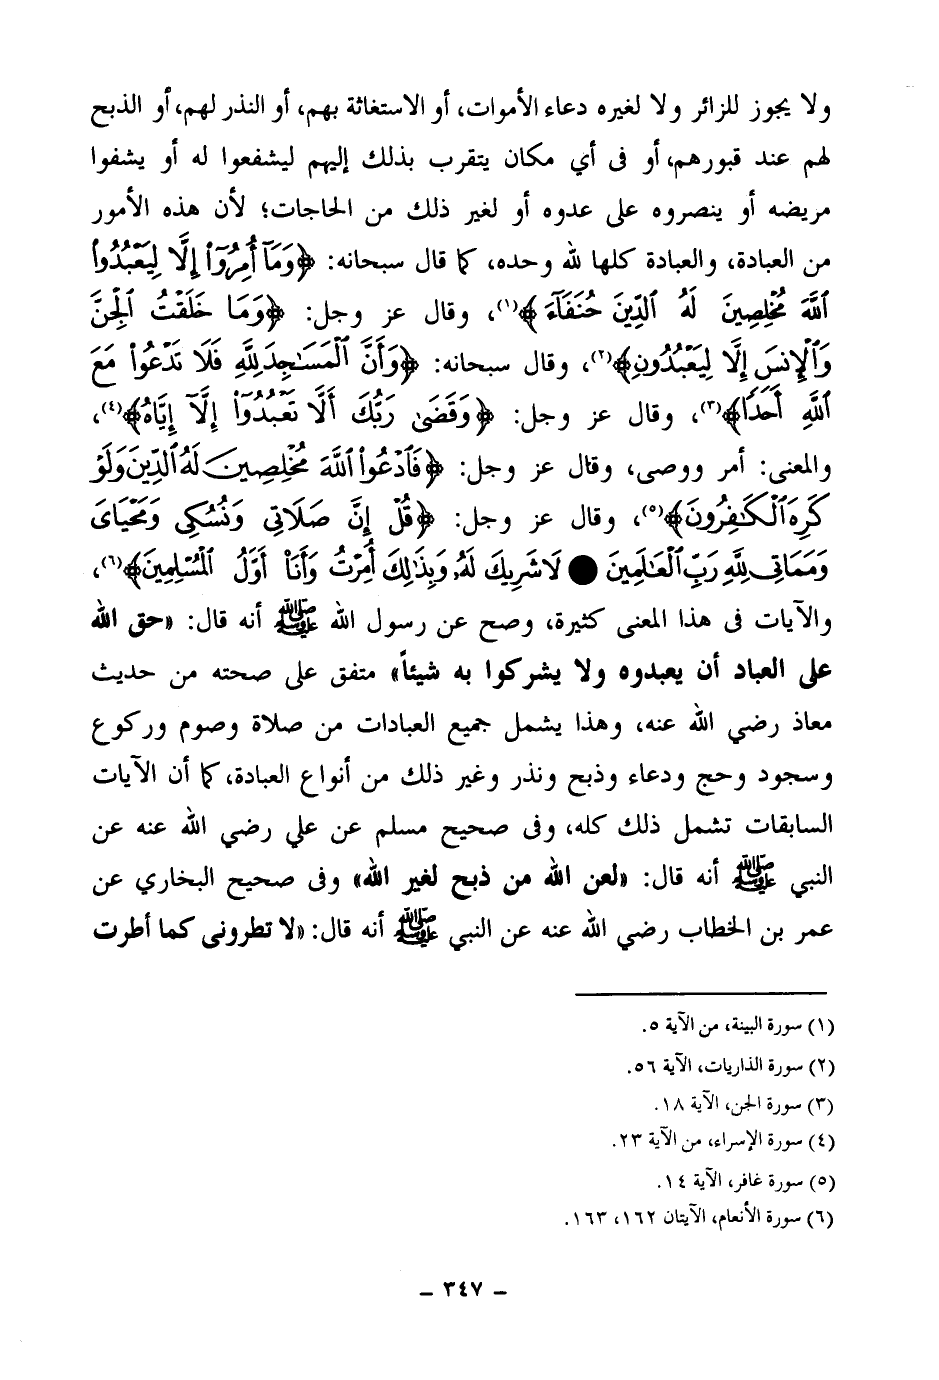 ولا يجوز للزائر ولا لغيره دعاء الأموات، أو الاستغاثة بهم، أو النذر لهم، أو الذبح
لهم عند قبورهم، أو فى أي مكان يتقرب بذلك إليهم ليشفعوا له أو يشفوا
مريضه أو ينصروه على عدوه أو لغير ذلك من الحاجات؛ لأن هذه الأمور
من العبادة، والعبادة كلها لله وحده، كما قال سبحانه: ﴿وَمَآ أُمِرُوٓا۟ إِلَّا لِيَعْبُدُوا۟
ٱللَّهَ مُخْلِصِينَ لَهُ ٱلدِّينَ حُنَفَآءَ﴾(١)، وقال عز وجل: ﴿وَمَا خَلَقْتُ ٱلْجِنَّ
وَٱلْإِنسَ إِلَّا لِيَعْبُدُونِ﴾(٢)، وقال سبحانه: ﴿وَأَنَّ ٱلْمَسَٰجِدَ لِلَّهِ فَلَا تَدْعُوا۟ مَعَ
ٱللَّهِ أَحَدًا﴾(٣)، وقال عز وجل: ﴿وَقَضَىٰ رَبُّكَ أَلَّا تَعْبُدُوٓا۟ إِلَّآ إِيَّاهُ﴾(٤)،
والمعنى: أمر ووصى، وقال عز وجل: ﴿فَٱدْعُوا۟ ٱللَّهَ مُخْلِصِينَ لَهُ ٱلدِّينَ وَلَوْ
كَرِهَ ٱلْكَٰفِرُونَ﴾(٥)، وقال عز وجل: ﴿قُلْ إِنَّ صَلَاتِى وَنُسُكِى وَمَحْيَاىَ
وَمَمَاتِى لِلَّهِ رَبِّ ٱلْعَٰلَمِينَ ● لَا شَرِيكَ لَهُۥ وَبِذَٰلِكَ أُمِرْتُ وَأَنَا۠ أَوَّلُ ٱلْمُسْلِمِينَ﴾(٦)،
والآيات فى هذا المعنى كثيرة، وصح عن رسول الله ﷺ أنه قال: «حق الله
على العباد أن يعبدوه ولا يشركوا به شيئاً» متفق على صحته من حديث
معاذ رضي الله عنه، وهذا يشمل جميع العبادات من صلاة وصوم وركوع
وسجود وحج ودعاء وذبح ونذر وغير ذلك من أنواع العبادة، كما أن الآيات
السابقات تشمل ذلك كله، وفى صحيح مسلم عن علي رضي الله عنه عن
النبي ﷺ أنه قال: «لعن الله من ذبح لغير الله» وفى صحيح البخاري عن
عمر بن الخطاب رضي الله عنه عن النبي ﷺ أنه قال: «لا تطرونى كما أطرت
(١) سورة البينة، من الآية ٥.
(٢) سورة الذاريات، الآية ٥٦.
(٣) سورة الجن، الآية ١٨.
(٤) سورة الإسراء، من الآية ٢٣.
(٥) سورة غافر، الآية ١٤.
(٦) سورة الأنعام، الآيتان ١٦٢، ١٦٣.
– ٣٤٧ –